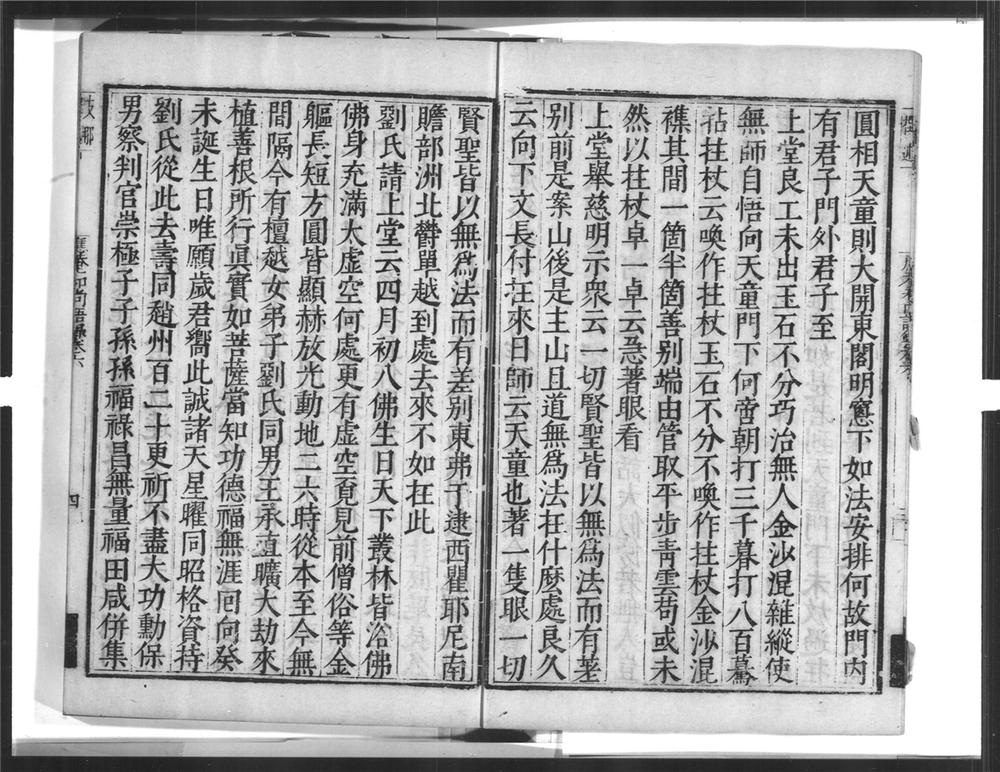 圓相天童則大開東閣明窻下如法安排何故門內
有君子門外君子至
上堂良工未出玉石不分巧冶無人金沙混雜縱使
無師自悟向天童門下何啻朝打三千暮打八百驀
拈拄杖云喚作拄杖玉石不分不喚作拄杖金沙混
襍其間一箇半箇善别端由管取平步靑雲苟或未
然以拄杖卓一卓云急著眼看
上堂舉慈明示衆云一切賢聖皆以無爲法而有差
别前是案山後是主山且道無爲法在什麽處良久
云向下文長付在來日師云天童也著一隻眼一切
賢聖皆以無爲法而有差别東弗于逮西瞿耶尼南
贍部洲北欝單越到處去來不如在此
劉氏請上堂云四月初八佛生日天下叢林皆浴佛
佛身充滿大虛空何處更有虛空覔見前僧俗等金
軀長短方圓皆顯赫放光動地二六時從本至今無
間隔今有檀越女弟子劉氏同男王永直曠大劫來
植善根所行眞實如菩薩當知功德福無涯囘向癸
未誕生日唯願歲君嚮此誠諸天星曜同昭格資持
劉氏從此去壽同趙州百二十更祈不盡大功勳保
男察判官崇極子子孫孫福祿昌無量福田咸併集
四